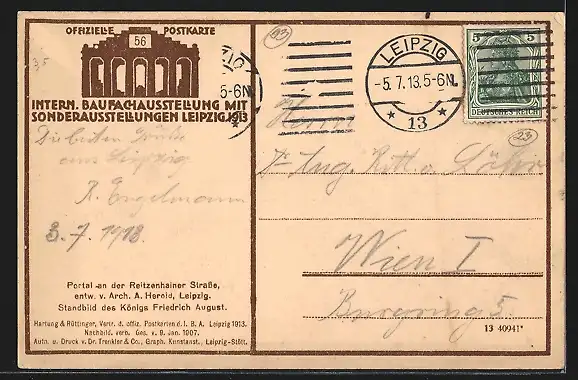 OFFIZIELLE POSTKARTE
56
INTERN. BAUFACHAUSSTELLUNG MIT
SONDERAUSSTELLUNGEN LEIPZIG 1913
35
Die besten Grüße
aus Leipzig
R. Engelmann
3.7.1913.
Portal an der Reitzenhainer Straße,
entw. v. Arch. A. Herold, Leipzig.
Standbild des Königs Friedrich August.
Hartung & Rüttinger, Vertr. d. offiz. Postkarten d. I. B. A. Leipzig 1913.
Nachbild. verb. Ges. v. 9. Jan. 1907.
Auto. u. Druck v. Dr. Trenkler & Co., Graph. Kunstanst., Leipzig-Stött.
ZIG
5-6N.
*
23
LEIPZIG
-5.7.13.5-6N.
* 13 *
5 5
DEUTSCHES REICH
23
Herrn
Dr Aug. Ritt. v.
Wien I
Burgring 5.
13 40941*